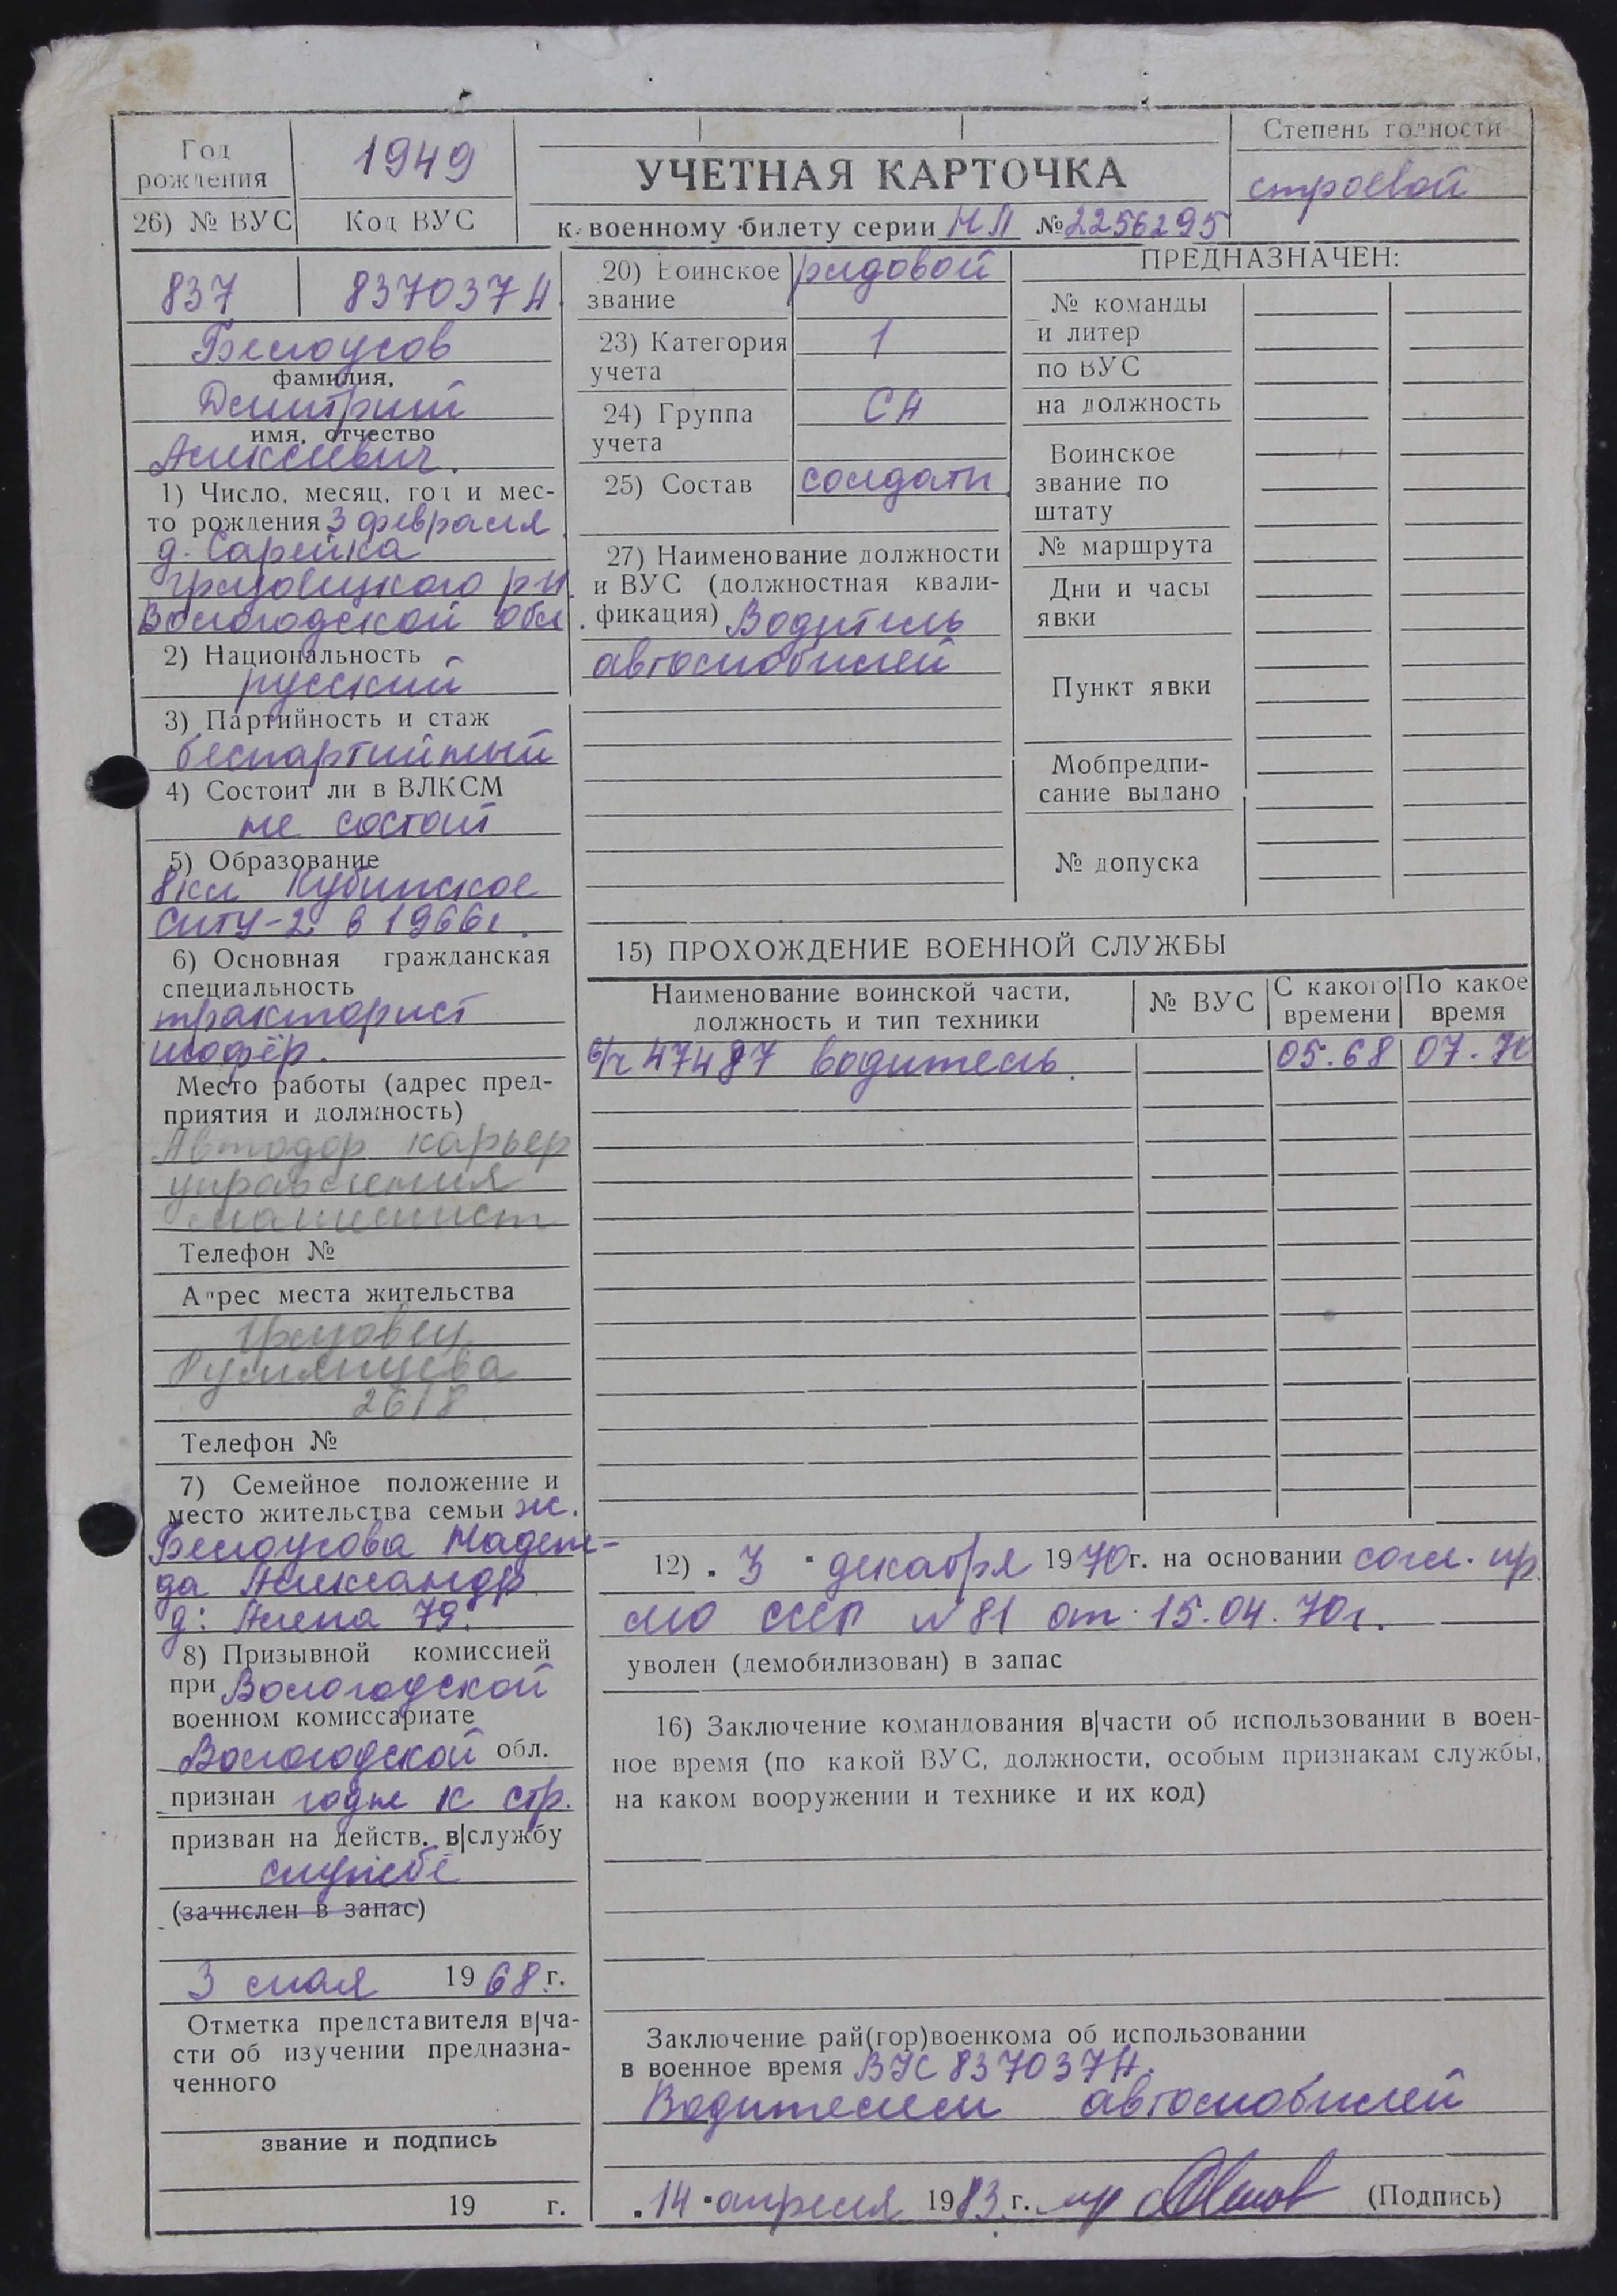 Год
рождения
1949
26) № ВУС
Код ВУС
УЧЕТНАЯ КАРТОЧКА
к военному билету серии НЛ №2256295
Степень годности
строевой
837
837037А
Белоусов
фамилия,
Дмитрий
имя, отчество
Алексеевич.
1) Число, месяц, год и мес-
то рождения 3 февраля
д. Сарейка
Грязовецкого р-н.
Вологодской обл.
2) Национальность
русский
3) Партийность и стаж
беспартийный
4) Состоит ли в ВЛКСМ
не состоит
5) Образование
8кл Кубинское
СПТУ-2 в 1966г.
6) Основная гражданская
специальность
тракторист
шофёр.
Место работы (адрес пред-
приятия и должность)
Автодор карьер
управления
машинист
Телефон №
Адрес места жительства
Грязовец
Румянцева
Телефон №
7) Семейное положение и
место жительства семьи ж.
Белоусова Надеж-
да Александр
д: Алена 79.
8) Призывной комиссией
при Вологодской
военном комиссариате
Вологодской обл.
признан годен к стр.
призван на действ. в|службу
службе
(зачислен в запас)
3 мая 1968 г.
Отметка представителя в|ча-
сти об изучении предназна-
ченного
звание и подпись
19 г.
20) Воинское
звание
рядовой
23) Категория
учета
1
24) Группа
учета
СА
25) Состав
солдаты
27) Наименование должности
и ВУС (должностная квали-
фикация) Водитель
автомобилей
ПРЕДНАЗНАЧЕН:
№ команды
и литер
по ВУС
на должность
Воинское
звание по
штату
№ маршрута
Дни и часы
явки
Пункт явки
Мобпредпи-
сание выдано
№ допуска
15) ПРОХОЖДЕНИЕ ВОЕННОЙ СЛУЖБЫ
Наименование воинской части,
должность и тип техники
№ ВУС
С какого
времени
По какое
время
в/ч 47487 водитель.
05.68
07.70
12) „3" декабря 1970г. на основании согл. пр.
МО СССР №81 от 15.04.70г.
уволен (демобилизован) в запас
16) Заключение командования в|части об использовании в воен-
ное время (по какой ВУС, должности, особым признакам службы,
на каком вооружении и технике и их код)
Заключение рай(гор)военкома об использовании
в военное время ВУС 837037А.
Водителем автомобилей
„14" апреля 1983 г.
(Подпись)